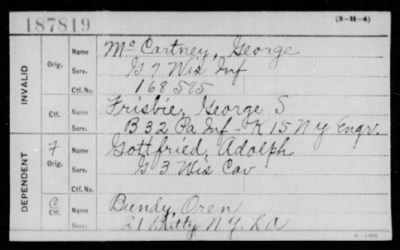 187819
(3-H-4)
INVALID
Orig.
Name McCartney, George
Serv. G 7 Wis Inf
Ctf. No. 168,575
Ctf.
Name Frisbie, George S
Serv. B 32 Pa Inf - K 15 N Y Engr.
DEPENDENT
F
Orig.
Name Gottfried, Adolph
Serv. G 3 Wis Cav
Ctf. No.
C
Ctf.
Name Bundy, Oren
Serv. 21 Batty N.Y. L A